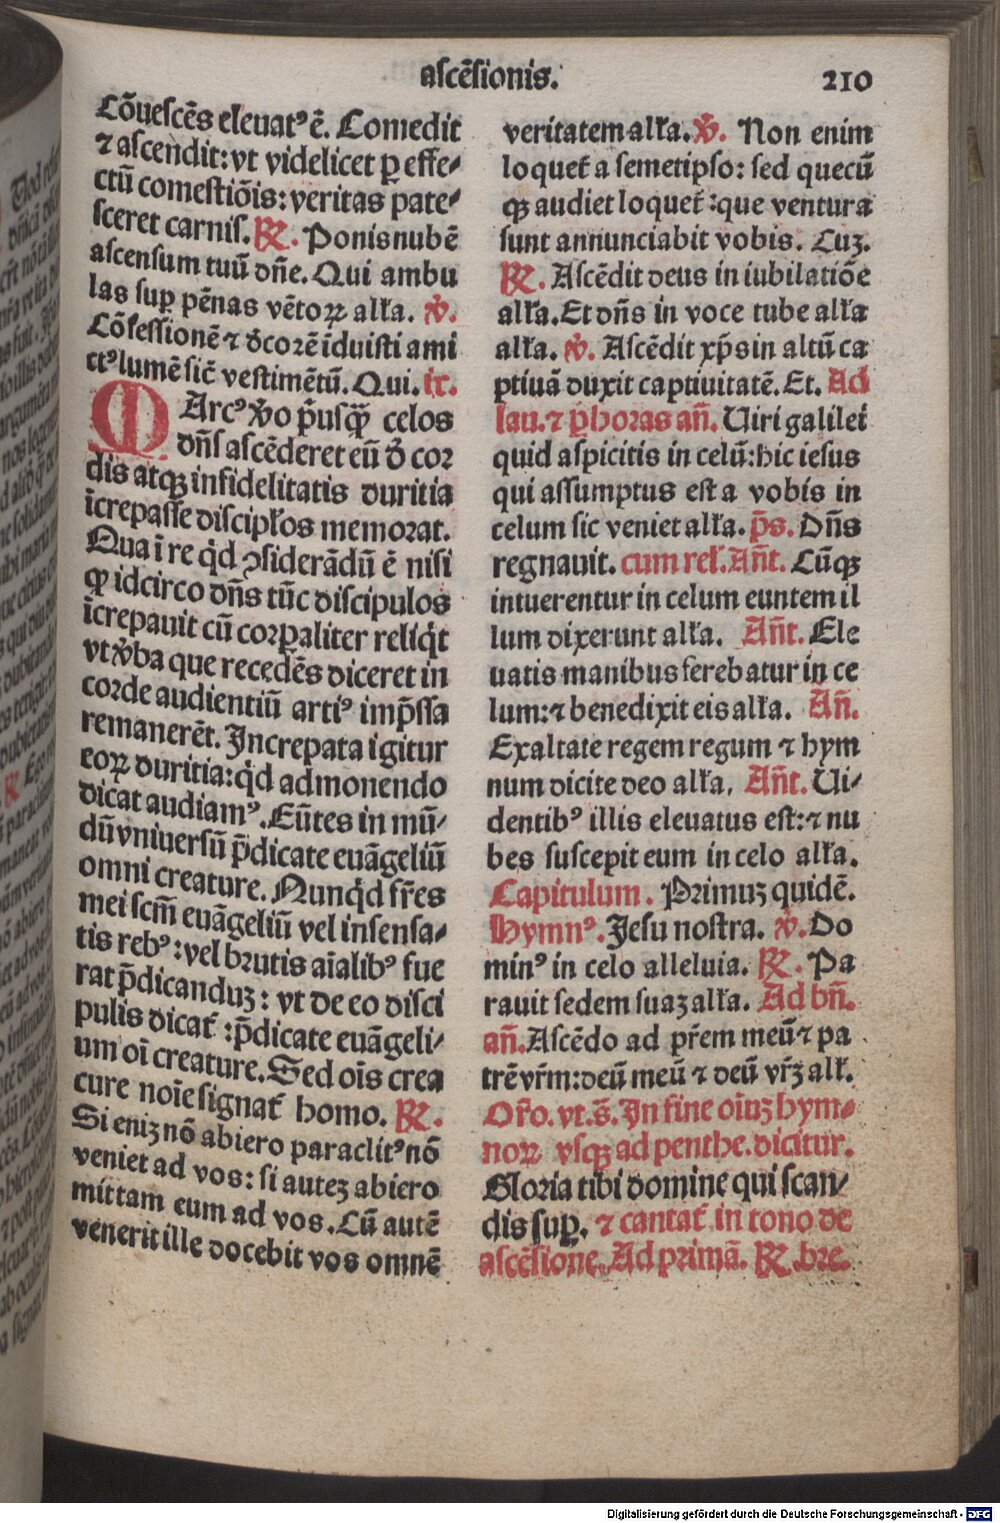 ascēsionis.
210
Cōuescēs eleuatꝰ ē. Comedit
⁊ ascendit: vt videlicet ꝑ effe⸗
ctū comestiōis: veritas pate⸗
sceret carnis. ℟. Ponis nubē
ascensum tuū dn̄e. Qui ambu
las suꝑ pēnas vētoꝝ alła. ℣.
Cōfessionē ⁊ ď corē īduisti ami
ctꝰ lumē sic̄ vestimētū. Qui. ix.
MArcꝰ v̾o p̄usꝙ̄ celos
dn̄s ascēderet eū ď cor
dis atqꝫ infidelitatis duritia
īcrepasse discipłos memorat.
Qua ī re q̇d ꝯsiderādū ē nisi
ꝙ idcirco dn̄s tūc discipulos
īcrepauit cū corꝑaliter reliq̇t
vt v̾ba que recedēs diceret in
corde audientiū artiꝰ imp̄ssa
remanerēt. Increpata igitur
eoꝝ duritia: q̇d admonendo
dicat audiamꝰ. Eūtes in mū⸗
dū vniuersū p̄dicate euāgeliū
omni creature. Nunq̇d fr̄es
mei scm̄ euāgeliū vel insensa⸗
tis rebꝰ: vel brutis aīalibꝰ fue
rat p̄dicanduꝫ: vt de eo disci
pulis dicat̄: p̄dicate euāgeli⸗
um oī creature. Sed oīs crea
cure noīe signat̄ homo. ℟.
Si eniꝫ nō abiero paraclitꝰ nō
veniet ad vos: si auteꝫ abiero
mittam eum ad vos. Cū autē
venerit ille docebit vos omnē
veritatem alła. ℣. Non enim
loquet̄ a semetipso: sed quecū
qꝫ audiet loquet̄: que ventura
sunt annunciabit vobis. Cuꝫ.
℟. Ascēdit deus in iubilatiōe
alła. Et dn̄s in voce tube alła
alła. ℣. Ascēdit xp̄s in altū ca
ptiuā duxit captiuitatē. Et. Ad
lau. ⁊ p̄ horas an̄. Uiri galilei
quid aspicitis in celū: hic iesus
qui assumptus est a vobis in
celum sic veniet alła. p̄s. Dn̄s
regnauit. cum rel̓. An̄t. Cūqꝫ
intuerentur in celum euntem il
lum dixerunt alła. An̄t. Ele
uatis manibus ferebatur in ce
lum: ⁊ benedixit eis alła. An̄.
Exaltate regem regum ⁊ hym
num dicite deo alła. An̄t. Ui⸗
dentibꝰ illis eleuatus est: ⁊ nu
bes suscepit eum in celo alła.
Capitulum. Primuꝫ quidē.
Hymnꝰ. Jesu nostra. ℣. Do
minꝰ in celo alleluia. ℟. Pa
rauit sedem suaꝫ alła. Ad bn̄.
an̄. Ascēdo ad pr̄em meū ⁊ pa
trē vr̄m: deū meū ⁊ deū vr̄ꝫ alł.
Or̄o. vt. s̄. In fine oīuꝫ hym⸗
noꝝ vsqꝫ ad penthe. dicitur.
Gloria tibi domine qui scan⸗
dis suꝑ. ⁊ cantat̄ in tono de
ascēsione. Ad primā. ℟. bre.
Digitalisierung gefördert durch die Deutsche Forschungsgemeinschaft - DFG